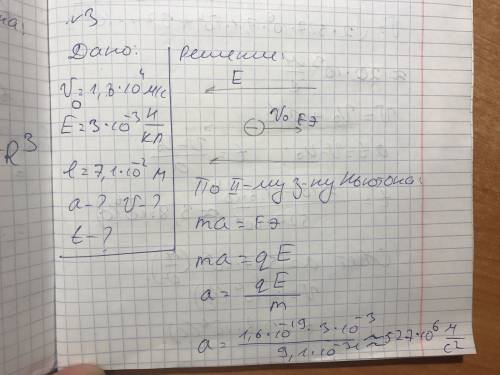 №3
Дано:
V₀ = 1,3·10⁴ м/с
E = 3·10⁻³ Н/Кл
l = 7,1·10⁻² м
a - ? V - ?
t - ?
R³
на.
Решение:
E
V₀ Fэ
−
По II-му з-ну Ньютона:
ma = Fэ
ma = qE
a = qE/m
a = 1,6·10⁻¹⁹·3·10⁻³/9,1·10⁻³¹ ≈ 527·10⁶ м/с²